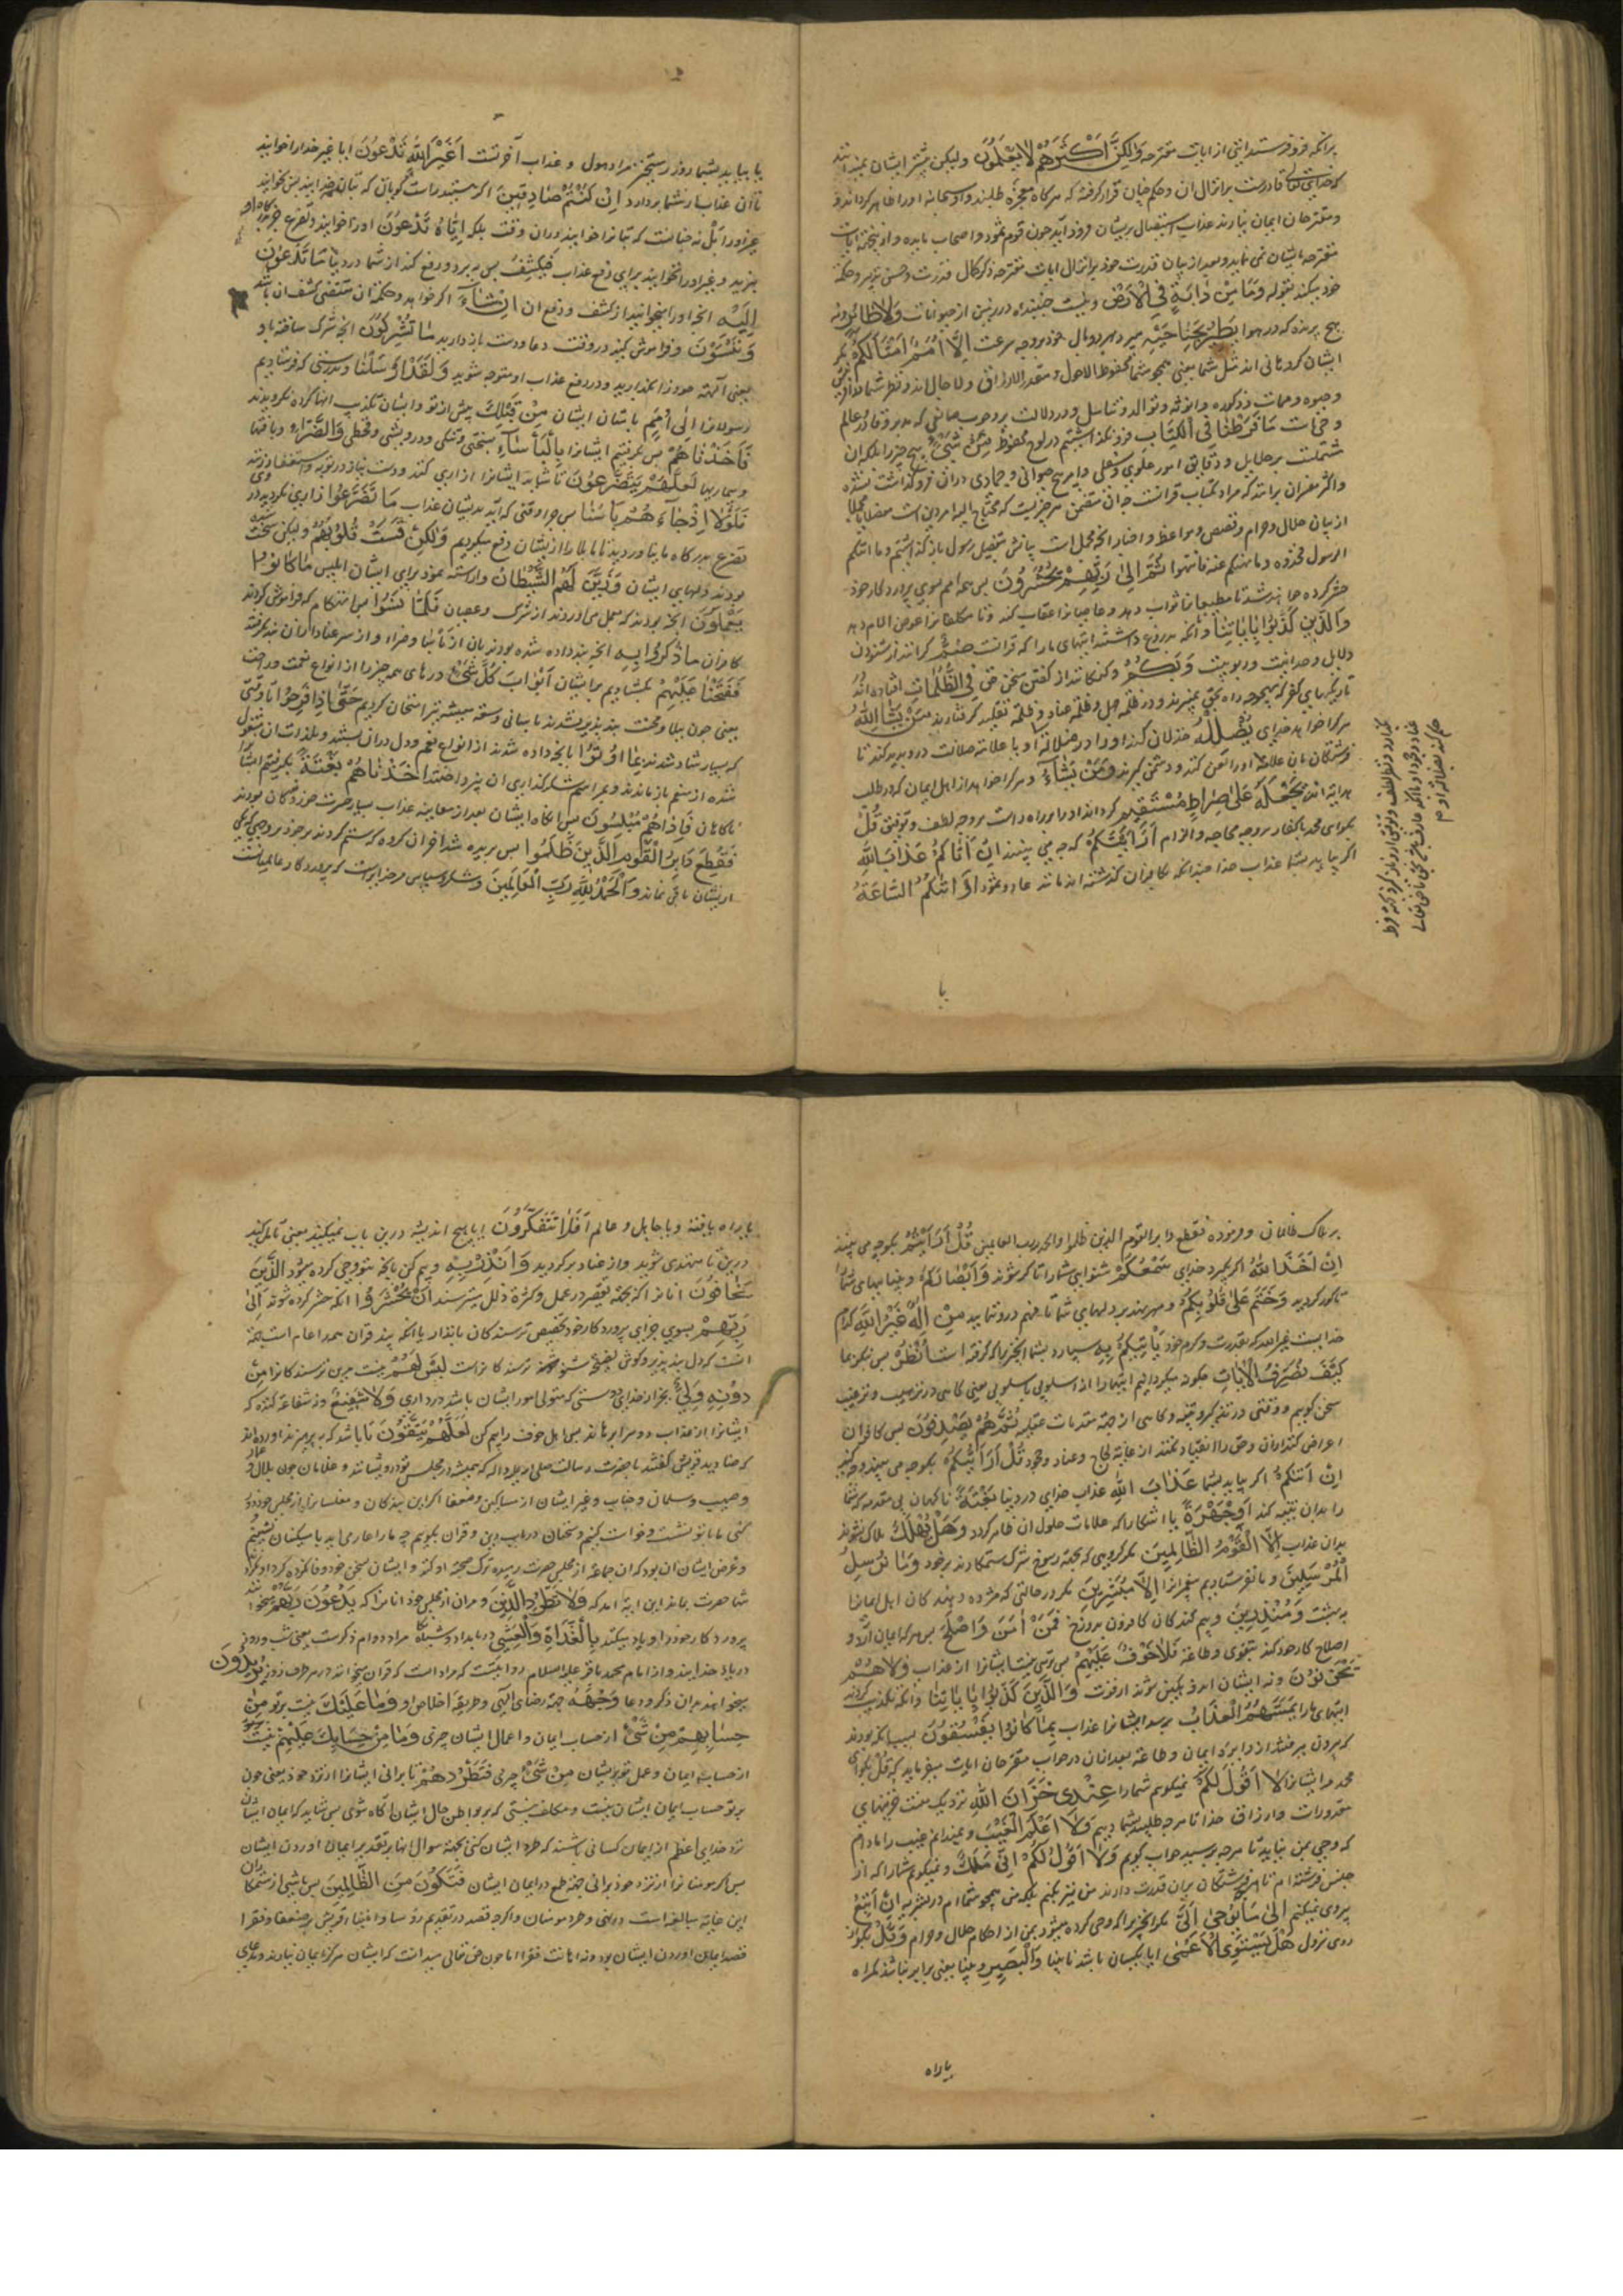 برانکه فرو فرستد ایتی از ایات مقترحه وَلٰکِنَّ اَکْثَرَهُمْ لَا یَعْلَمُونَ ولیکن بیشتر ایشان نمیدانند
که خدای تعالی قادرست برانزال ان و حکم چنان قرار گرفته که هرکاه معجزه طلبند و او سبحانه اورا ظاهر کرداند و
و مقترحان ایمان نیارند عذاب استیصال بریشان فرود آید چون قوم ثمود و اصحاب مایده و ازینجهة ایات
مقترحه بایشان نمی نماید و بعد از بیان قدرت خود برانزال ایات مقترحه ذکر کمال قدرت و حسن تدبیر و حکمة
خود میکند بقوله وَمَا مِنْ دَابَّةٍ فِی الْاَرْضِ و نیست جنبنده در زمین از حیوانات وَلَا طَائِرٍ و نه
هیچ پرنده که در هوا یَطِیرُ بِجَنَاحَیْهِ میپرد بهر دو بال خود بر وجه سرعت اِلَّا اُمَمٌ اَمْثَالُکُمْ مکر
ایشان کروهانی اند مثل شما یعنی همچو شما محفوظ الاحوال و مقدر الارزاق
و حیوة و ممات و ذکوره و انوثه و توالد و تناسل و در دلالت بر وجوب صانعی که مدبر و قادر عالم
و خراست مَا فَرَّطْنَا فِی الْکِتَابِ فرو نکذاشتیم در لوح محفوظ مِنْ شَیْءٍ هیچ چیز را بلکه ان
مشتملست بر جلایل و دقایق امور علوی و سفلی و امر هیچ حیوانی و جمادی دران فرو کذاشت نشده
و اکثر مفسران برانند که مراد بکتاب قرانست چه ان متضمن هر چیزیست که محتاج الیه امر دین است مفصلا یا مجملا
از بیان حلال و حرام و قصص و مواعظ و اخبار انچه مجمل است بیانش بتفصیل رسول باز کذاشتیم و ما اتیکم
الرسول فخذوه و ما نهیکم عنه فانتهوا ثُمَّ اِلٰی رَبِّهِمْ یُحْشَرُونَ پس همه امم بسوی پروردکار خود
حشر کرده خواهند شد تا مطیعانرا ثواب دهد و عاصیانرا عقاب کند و نا مکلفانرا عوض الام دهد
وَالَّذِینَ کَذَّبُوا بِاٰیَاتِنَا و انانکه بدروغ داشتند ایتهای مارا که قرانست صُمٌّ کرانند از شنودن
دلایل وحدانیت و ربوبیت وَبُکْمٌ و کنکانند از کفتن سخن حق فِی الظُّلُمَاتِ افتاده اند در
تاریکیهای کفر که بهیچوجه راه بحق نمیبرند و در ظلمه جهل و ظلمه عناد و ظلمه تقلید کرفتارند مَنْ یَشَأِ اللّٰهُ
هرکرا خواهد خدای یُضْلِلْهُ خذلان کند اورا در ضلالة او یا علامة ضلالت در و پدید کند تا
فرشتکان بان علامة اورا لعن کنند و دشمن کیرند وَمَنْ یَشَاْءُ و هرکرا خواهد از اهل ایمان که در طلب
هدایة اند یَجْعَلْهُ عَلٰی صِرَاطٍ مُسْتَقِیمٍ کرداند اورا بر راه راست بر وجه لطف و توفیق قُلْ
بکو ای محمد با کفار بر وجه محاجه و الزام اَرَاَیْتَکُمْ که چه می بینید اِنْ اَتَاکُمْ عَذَابُ اللّٰهِ
اکر بیاید بشما عذاب خدا چنانکه بکافران کذشته امد مانند عاد و ثمود اَوْ اَتَتْکُمُ السَّاعَةُ
یا
یا بیاید بشما روز رستخیز مراد هول و عذاب آخرتست اَغَیْرَ اللّٰهِ تَدْعُونَ ایا غیر خدا را خوانید
تا ان عذاب از شما بردارد اِنْ کُنْتُمْ صَادِقِینَ اکر هستید راست کویان
چیز اورا بَلْ نه چنانست که بتانرا خوانید دران وقت بلکه اِیَّاهُ تَدْعُونَ اورا خوانید و تضرع
برید و غیر اورا نخوانید برای دفع عذاب فَیَکْشِفُ پس ببرد و رفع کند از شما در دنیا مَا تَدْعُونَ
اِلَیْهِ انچه اورا میخوانید از کشف و دفع ان اِنْ شَاْءَ اکر خواهد و حکمة ان مقتضی کشف ان باشد
وَتَنْسَوْنَ و فراموش کنید دران وقت دعا و دست بازدارید مَا تُشْرِکُونَ انچه شریک ساخته باو
یعنی آلهه خود را بکذارید و در دفع عذاب او متوجه شوید وَلَقَدْ اَرْسَلْنَا و بدرستی که فرستادیم
رسولانرا اِلٰی اُمَمٍ بامتان ایشان مِنْ قَبْلِکَ پیش از تو و ایشان تکذیب انها کرده نکرویدند
فَاَخَذْنَاهُمْ پس کرفتیم ایشانرا بِالْبَأْسَاْءِ بسختی و تنکی و درویشی و قحطی وَالضَّرَّاْءِ و بافتها
و بیماریها لَعَلَّهُمْ یَتَضَرَّعُونَ تا شاید ایشان زاری کنند و دست نیاز در توبه و استغفار زنند
فَلَوْلَا اِذْ جَاْءَهُمْ بَأْسُنَا پس چرا وقتی که آید بدیشان عذاب ما تَضَرَّعُوا زاری نکردند و روی
تضرع بدرکاه ما نیاوردند تا ما بلا را ازیشان دفع میکردیم وَلٰکِنْ قَسَتْ قُلُوبُهُمْ ولیکن سخت شده
بودند دلهای ایشان وَزَیَّنَ لَهُمُ الشَّیْطَانُ و اراسته نمود برای ایشان ابلیس مَا کَانُوا
یَعْمَلُونَ انچه بودند که عمل می اوردند از شرک و عصیان فَلَمَّا نَسُوا پس انهنکام که فراموش کردند
کافران مَا ذُکِّرُوا بِهِ انچه پند داده شده بودند بان از بأسا و ضرا و از سر عناد ازان پند نکرفتند
فَتَحْنَا عَلَیْهِمْ بکشادیم بر ایشان اَبْوَابَ کُلِّ شَیْءٍ درهای همه چیز را از انواع نعمت و راحت
یعنی چون ببلا و محنت پند پذیر نشدند باسانی و سعة معیشة نیز امتحان کردیم حَتّٰی اِذَا فَرِحُوا تا وقتی
که بسیار شاد شدند بِمَا اُوتُوا بانچه داده شدند از انواع نعم و دل دران بستند و بلذات ان مشغول
شده از منعم باز ماندند و بمراسم شکرکذاری ان نپرداختند اَخَذْنَاهُمْ بَغْتَةً بکرفتیم ایشانرا
ناکاهان فَاِذَا هُمْ مُبْلِسُونَ پس انکاه ایشان بعد از معاینه عذاب بسیار حسرت خوردکان بودند
فَقُطِعَ دَابِرُ الْقَوْمِ الَّذِینَ ظَلَمُوا پس بریده شد اخر ان کروه که ستم کردند بر خود بر وجهی که یکی
ازیشان باقی نماند وَالْحَمْدُ لِلّٰهِ رَبِّ الْعَالَمِینَ و شکر و سپاس مر خدایراست که پروردکار عالمیانست
بر هلاک ظالمان و فرموده فقطع دابر القوم الذین ظلموا والحمد لله رب العالمین قُلْ اَرَاَیْتُمْ بکو چه می بینید
اِنْ اَخَذَ اللّٰهُ اکر بکیرد خدای سَمْعَکُمْ شنوایی شمارا تا کر شوید وَاَبْصَارَکُمْ و بیناییهای شما
تا کور کردید وَخَتَمَ عَلٰی قُلُوبِکُمْ و مهر نهد بر دلهای شما تا فهم درو نماند مَنْ اِلٰهٌ غَیْرُ اللّٰهِ کدام
خداییست غیر الله که بقدرت و کرم خود یَأْتِیکُمْ بِهِ بیارد بشما انچیز را که کرفته است اُنْظُرْ پس بنکر بما
کَیْفَ نُصَرِّفُ الْاٰیَاتِ چکونه میکردانیم ایتها را از اسلوبی باسلوبی یعنی کاهی در ترهیب و ترغیب
سخن کوییم و وقتی در تذکیر و تنبیه و کاهی از جهة مقدمات عقلیه ثُمَّ هُمْ یَصْدِفُونَ پس کافران
اعراض کنند ازان و حق را انقیاد نکنند از غایة لجاج و عناد و جحود قُلْ اَرَاَیْتَکُمْ بکو چه می بینید
اِنْ اَتٰیکُمْ اکر بیاید بشما عَذَابُ اللّٰهِ عذاب خدای در دنیا بَغْتَةً ناکهان بی مقدمه که شما
را بدان تنبیه کند اَوْ جَهْرَةً یا اشکارا که علامات حلول ان ظاهر کردد وَهَلْ یُهْلَکُ هلاک نشوند
بدان عذاب اِلَّا الْقَوْمُ الظَّالِمُونَ مکر کروهی که بجهة رسوخ شرک ستمکارند بر خود وَمَا نُرْسِلُ
الْمُرْسَلِینَ و ما نفرستادیم پیغمبرانرا اِلَّا مُبَشِّرِینَ مکر در حالتی که مژده دهندکان اهل ایمانرا
به بهشت وَمُنْذِرِینَ و بیم کنندکان کافران بدوزخ فَمَنْ اٰمَنَ وَاَصْلَحَ پس هرکه ایمان آرد و
اصلاح کار خود کند بتقوی و طاعة فَلَا خَوْفٌ عَلَیْهِمْ پس ترسی نیست ایشانرا از عذاب وَلَا هُمْ
یَحْزَنُونَ و نه ایشان اندوهکین شوند از فوت وَالَّذِینَ کَذَّبُوا بِاٰیَاتِنَا و انانکه تکذیب کردند
ایتهای مارا یَمَسُّهُمُ الْعَذَابُ برسد ایشانرا عذاب بِمَا کَانُوا یَفْسُقُونَ بسبب انکه بودند
که بیرون میرفتند از دایره ایمان و طاعة بعد ازان در جواب مقترحان ایات میفرماید که قُلْ بکو ای
محمد مر ایشانرا لَا اَقُولُ لَکُمْ نمیکویم شمارا عِنْدِی خَزَائِنُ اللّٰهِ نزدیک منست خزینهای
مقدورات و ارزاق خدا تا هرچه طلبید بشما دهم وَلَا اَعْلَمُ الْغَیْبَ و نمیدانم غیب را مادام
که وحی بمن نیاید تا هرچه پرسید جواب کویم وَلَا اَقُولُ لَکُمْ اِنِّی مَلَکٌ و نمیکویم شمارا که از
جنس فرشته ام تا هرچه فرشتکان بران قدرت دارند من نیز بکنم بلکه من همچو شما ام در بشریه اِنْ اَتَّبِعُ
پیروی نمیکنم اِلَّا مَا یُوحٰی اِلَیَّ مکر انچیز را که وحی کرده میشود بمن از احکام حلال و حرام قُلْ بکو از
روی نزول هَلْ یَسْتَوِی الْاَعْمٰی ایا یکسان باشد نابینا وَالْبَصِیرُ و بینا یعنی برابر نباشد کمراه
یا راه
با راه یافته و یا جاهل و عالم اَفَلَا تَتَفَکَّرُونَ ایا هیچ اندیشه درین باب نمیکنید یعنی تامل کنید
درین تا مهتدی شوید و از عناد برکردید وَاَنْذِرْ بِهِ و بیم کن بانچه بتو وحی کرده میشود الَّذِینَ
یَخَافُونَ انانرا که بجهة تقصیر در عمل و کثرة زلل میترسند اَنْ یُحْشَرُوا انکه حشر کرده شوند اِلٰی
رَبِّهِمْ بسوی جزای پروردکار خود تخصیص ترسندکان بانذار با انکه پند قران همه را عام است بجهة
انست که دل پند پذیر و کوش نصیحت شنو ترسندکانراست لَیْسَ لَهُمْ نیست مرین ترسندکانرا مِنْ
دُونِهِ وَلِیٌّ بجز از خدای دوستی که متولی امور ایشان باشد در دار دنیا وَلَا شَفِیعٌ و نه شفاعة کننده که
ایشانرا از عذاب دوسرا برهاند پس اهل خوف را بیم کن لَعَلَّهُمْ یَتَّقُونَ تا باشد که بپرهیزند
که صنادید قریش کفتند با حضرت رسالت صلی الله علیه واله که همیشه در مجلس تو درویشانند و غلامان چون بلال و عمار
و صهیب و سلمان و خباب و غیر ایشان از مساکین و ضعفا اکر این بندکان و مفلسانرا از مجلس خود دور
کنی ما با تو نشست و خواست کنیم و سخنان در باب دین و قران بکوییم چه مارا عار می اید با مسکینان نشینیم
شما حضرت بماند این ایة امد که وَلَا تَطْرُدِ الَّذِینَ و مران از مجلس خود انانرا که یَدْعُونَ رَبَّهُمْ میخوانند
پروردکار خود را و یاد میکنند بِالْغَدَاةِ وَالْعَشِیِّ در بامداد و شبانکاه مراد دوام ذکرست یعنی شب و روز
در یاد خدایند و از امام محمد باقر علیه السلام روایتست که مراد انست که قران میخوانند در هر طرف روز یُرِیدُونَ
میخواهند بدان ذکر و دعا وَجْهَهُ جهة رضای الهی و طریقه اخلاص او مَا عَلَیْکَ نیست برتو مِنْ
حِسَابِهِمْ مِنْ شَیْءٍ از حساب ایمان و اعمال ایشان چیزی وَمَا مِنْ حِسَابِکَ عَلَیْهِمْ نیست
از حساب ایمان و عمل تو بریشان مِنْ شَیْءٍ چیزی فَتَطْرُدَهُمْ تا برانی ایشانرا از نزد خود یعنی چون
برتو حساب ایمان ایشان نیست و مکلف نیستی که بر بواطن حال ایشان آکاه شوی پس شاید که ایمان ایشان
نزد خدای اعظم از ایمان کسانی باشند که طرد ایشان کنی بجهة سوال انها بر تقدیر ایمان اوردن ایشان
پس اکر مومنانرا از نزد خود برانی بجهة طمع در ایمان ایشان فَتَکُونَ مِنَ الظَّالِمِینَ پس باشی از ستمکاران
این غایة مبالغه است در نهی و طرد مومنان و اکرچه قصد در تقدیم رؤسا و اغنیاء قریش بر ضعفا و فقرا
قصد ایمان اوردن ایشان بود و نه اهانت فقرا اما چون حق تعالی میدانست که ایشان هرکز ایمان نیارند